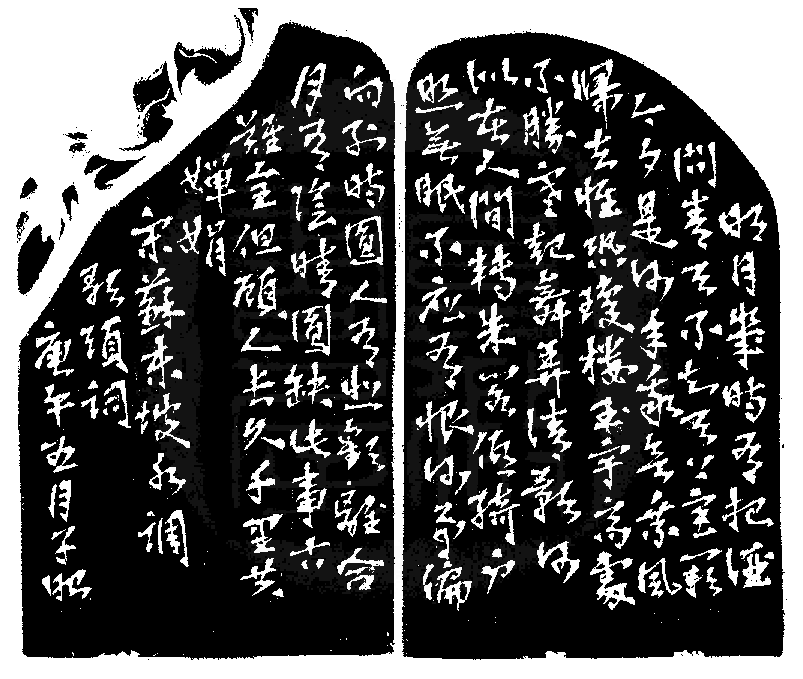 明月幾時有把酒
問青天不知天上宮闕
今夕是何年我欲乘風
歸去惟恐瓊樓玉宇高處
不勝寒起舞弄清影何
似在人間轉朱閣低綺戶
照無眠不應有恨何事偏
向別時圓人有悲歡離合
月有陰晴圓缺此事古
難全但願人長久千里共
嬋娟
宋蘇東坡水調
歌頭詞
庚午五月子昭